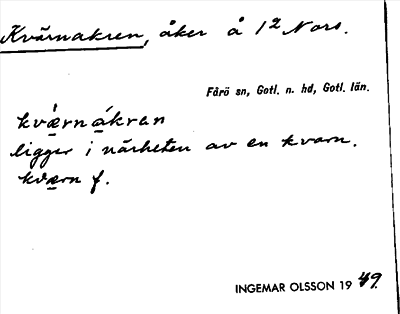 Kvärnakren, åker å 1² Nors.
Fårö sn, Gotl. n. hd, Gotl. län.
kværnákran
ligger i närheten av en kvarn.
kværn f.
INGEMAR OLSSON 19 49.